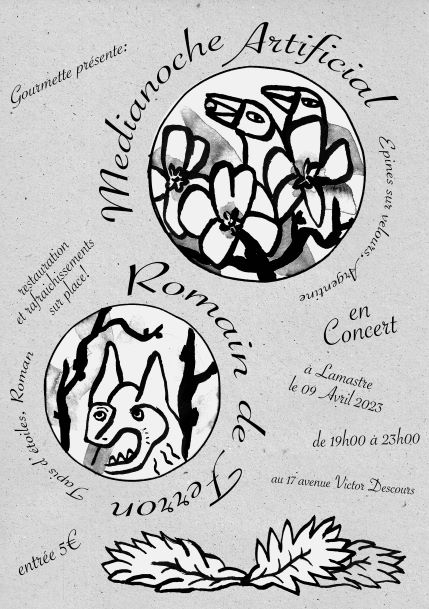 Gourmette présente:
Medianoche Artificial
Epines sur velours, Argentine
restauration
et rafraichissements
sur place!
Romain de Ferron
Tapis d'étoiles, Roman
en
Concert
à Lamastre
le 09 Avril 2023
de 19h00 à 23h00
au 17 avenue Victor Descours
entrée 5€